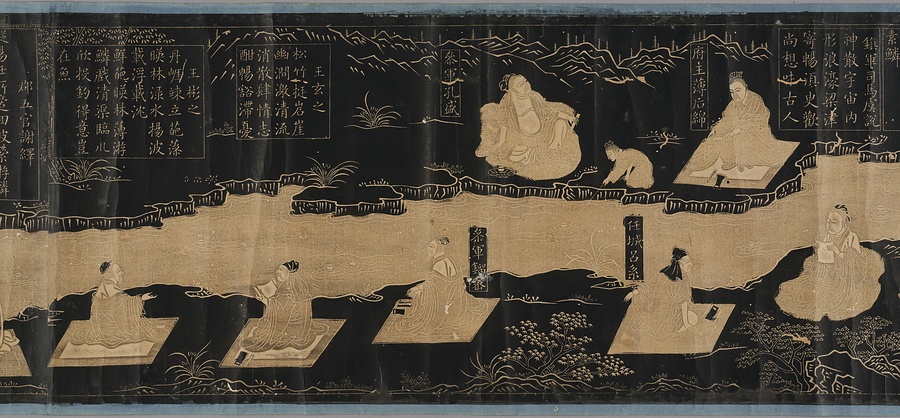 鎮軍司馬虞說
神散宇宙內
形浪濠梁津
寄暢須臾歡
尚想味古人
府主簿后綿
叅軍孔盛
王玄之
松竹挺岩崖
幽澗激清流
消散肆情志
酣暢豁滯憂
王彬之
丹崖竦立葩藻
暎林淥水揚波
載浮載沈
鮮葩暎林薄游
鱗戲清渠臨川
欣投釣得意豈
在魚
郡五官謝繹
任城呂系
叅軍